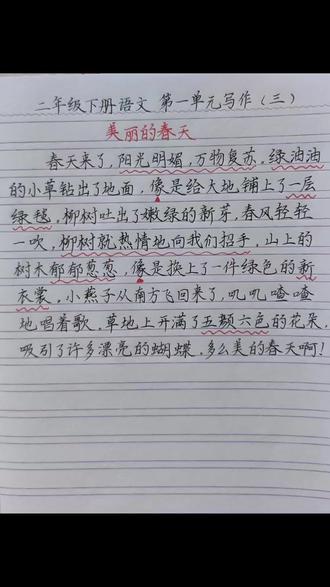 二年级下册语文 第一单元写作(三)
美丽的春天
春天来了,阳光明媚,万物复苏,绿油油
的小草钻出了地面,像是给大地铺上了一层
绿毯,柳树吐出了嫩绿的新芽,春风轻轻
一吹,柳树就热情地向我们招手,山上的
树木郁郁葱葱,像是换上了一件绿色的新
衣裳,小燕子从南方飞回来了,叽叽喳喳
地唱着歌。草地上开满了五颜六色的花朵,
吸引了许多漂亮的蝴蝶,多么美的春天啊!